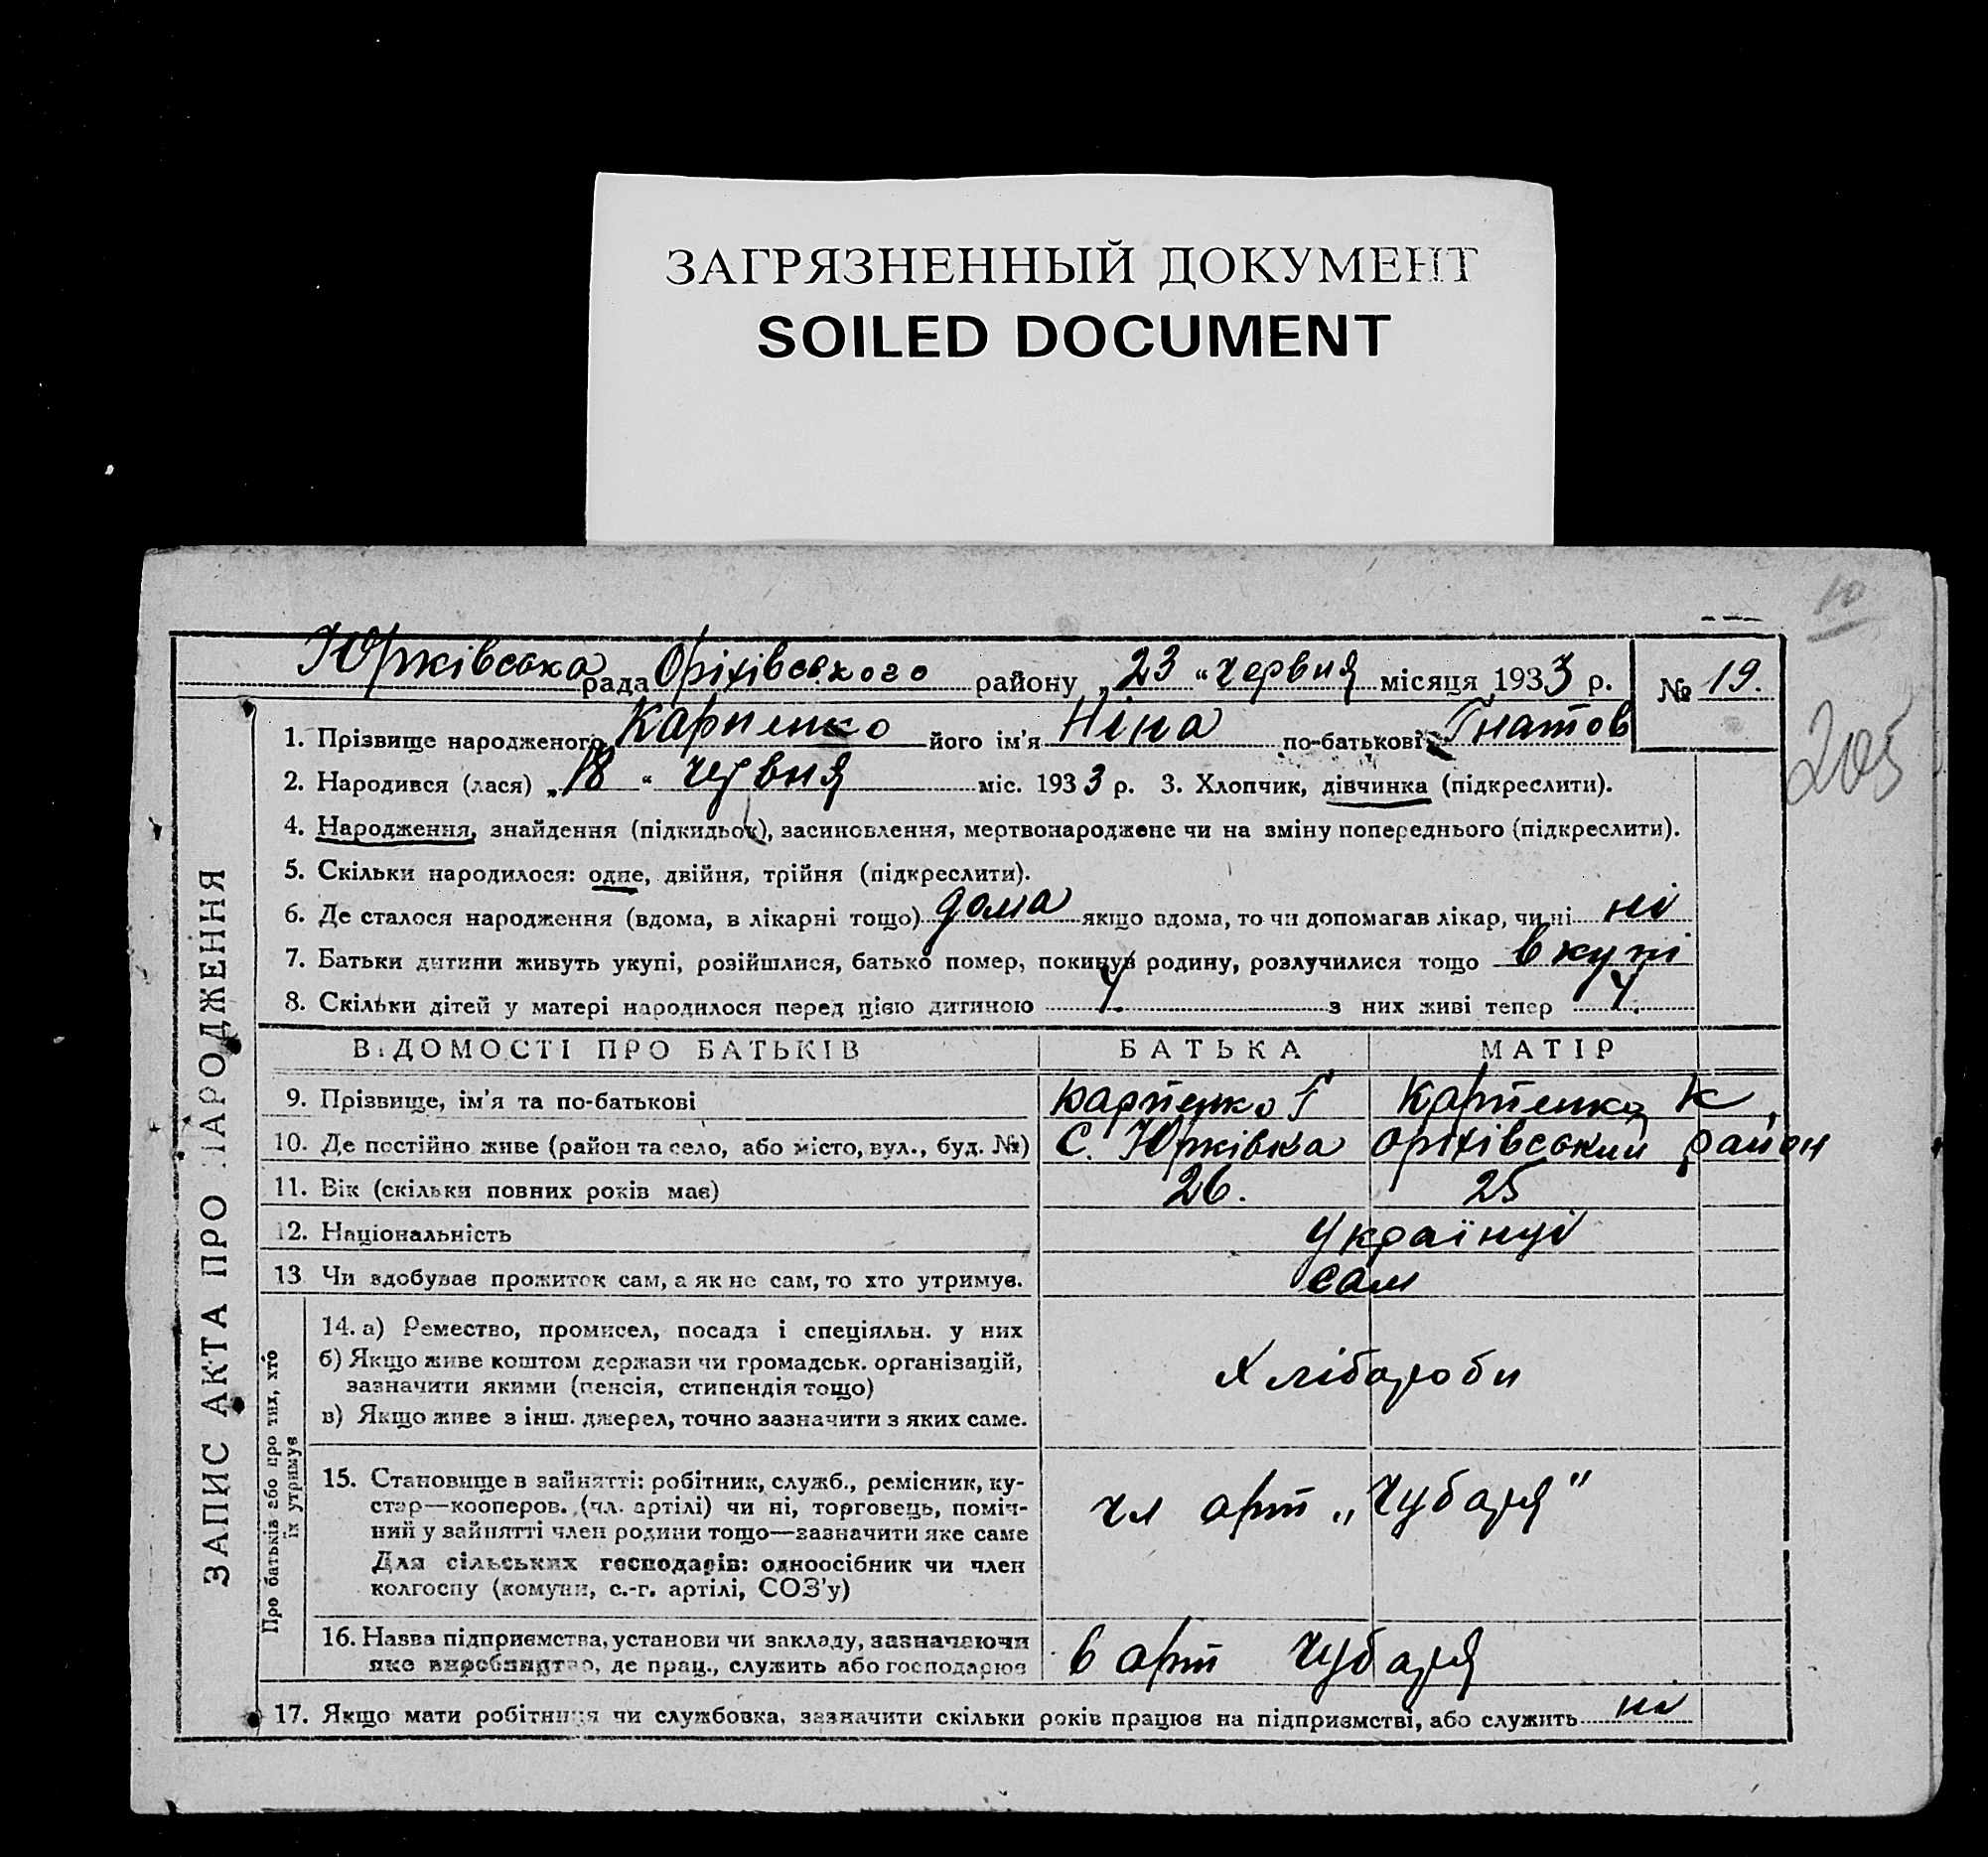 ЗАГРЯЗНЕННЫЙ ДОКУМЕНТ
SOILED DOCUMENT
10
Юрківська рада Оріхівського району „23“ червня місяця 1933 р. № 19.
205
1. Прізвище народженого Карпенко його ім'я Ніна по-батькові Гнатов
2. Народився (лася) „18“ червня міс. 1933 р. 3. Хлопчик, дівчинка (підкреслити).
4. Народження, знайдення (підкидьок), засиновлення, мертвонароджене чи на зміну попереднього (підкреслити).
5. Скільки народилося: одне, двійня, трійня (підкреслити).
6. Де сталося народження (вдома, в лікарні тощо) дома якщо вдома, то чи допомагав лікар, чи ні ні
7. Батьки дитини живуть укупі, розійшлися, батько помер, покинув родину, розлучилися тощо вкупі
8. Скільки дітей у матері народилося перед цією дитиною 4. з них живі тепер 4.
ВІДОМОСТІ ПРО БАТЬКІВ БАТЬКА МАТІР
9. Прізвище, ім'я та по-батькові Карпенко Г Карпенко К
10. Де постійно живе (район та село, або місто, вул., буд. №) С. Юрківка Оріхівський район
11. Вік (скільки повних років має) 26. 25
12. Національність Українці
13 Чи здобуває прожиток сам, а як не сам, то хто утримує. сам
14. а) Ремество, промисел, посада і спеціяльн. у них
б) Якщо живе коштом держави чи громадськ. організацій,
зазначити якими (пенсія, стипендія тощо)
в) Якщо живе з інш. джерел, точно зазначити з яких саме.
Хлібороби
15. Становище в зайнятті: робітник, служб., ремісник, ку-
стар—кооперов. (чл. артілі) чи ні, торговець, поміч-
ний у зайнятті член родини тощо—зазначити яке саме
Для сільських господарів: одноосібник чи член
колгоспу (комуни, с.-г. артілі, СОЗ'у)
чл арт „Чубаря"
16. Назва підприємства, установи чи закладу, зазначаючи
яке виробництво, де прац., служить або господарює
в арт Чубаря
17. Якщо мати робітниця чи службовка, зазначити скільки років працює на підприємстві, або служить ні
ЗАПИС АКТА ПРО НАРОДЖЕННЯ
Про батьків або про тих, хто
їх утримує